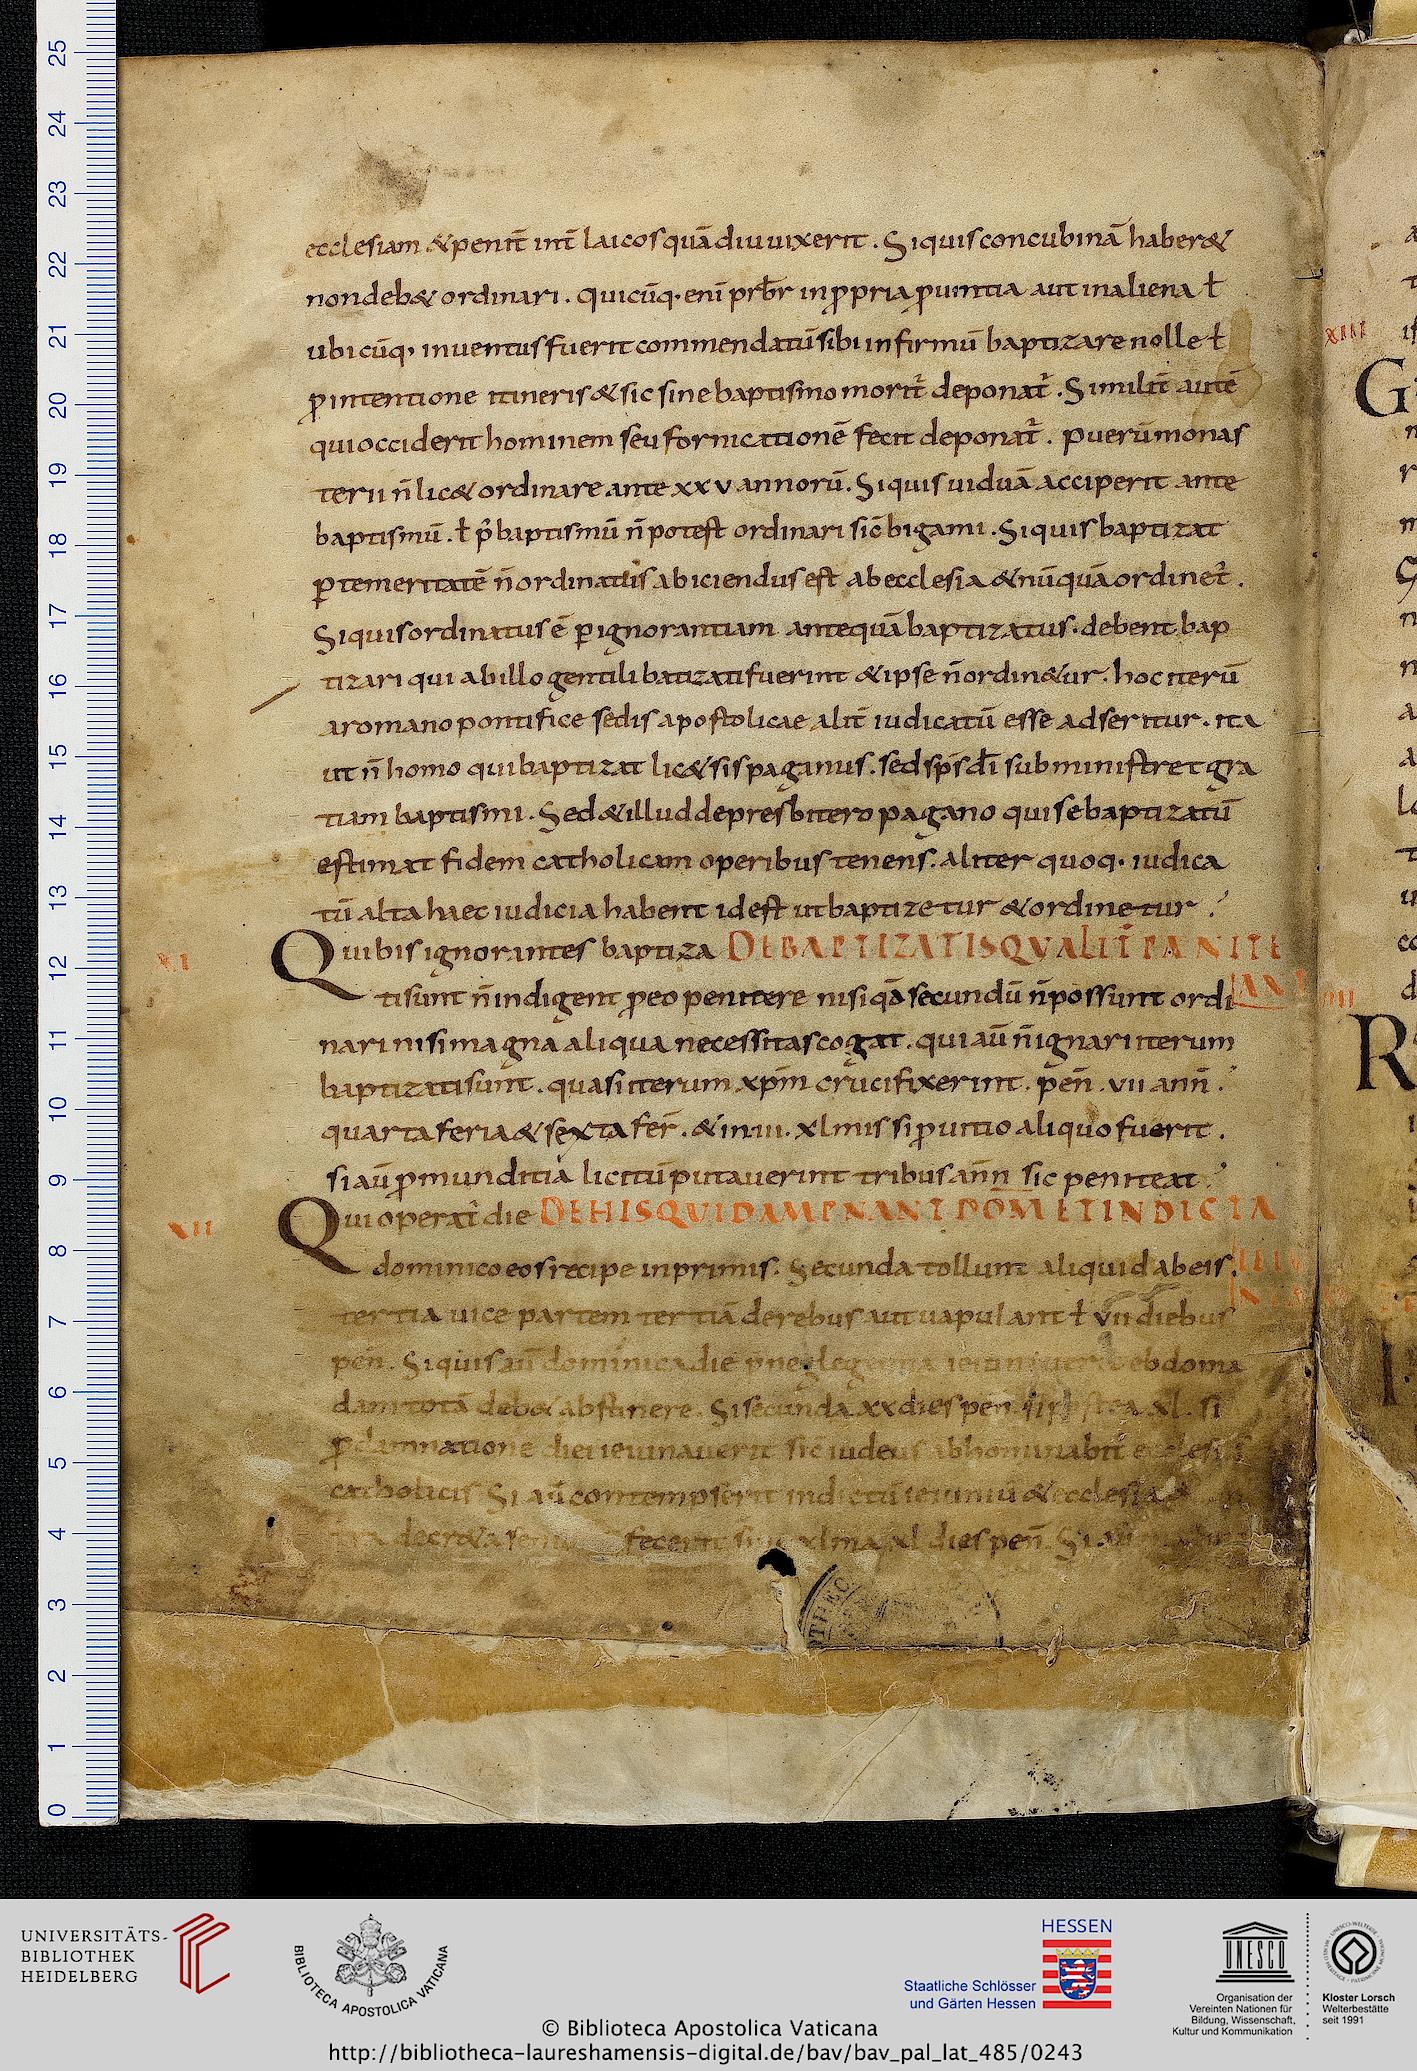 ecclesiam & penit̄ int̄ laicos quā diu uixerit . Siquis concubinā haber&
non deb& ordinari . quicūq· eni prb̄r in ꝓpria ꝓuintia aut in aliena ł
ubicūq· inuentus fuerit commendatū sibi infirmū baptizare nolle ł
ꝓ intentione itineris & sic sine baptismo morit̄ deponat̄ . Similit̄ autē
qui occiderit hominem seu fornicationē fecit deponat̄ . puerū monas
terii n̄ lic& ordinare ante xxv annorū . Siquis uiduā acciperit ante
baptismū . ł p̄ baptismū n̄ potest ordinari sic̄ bigami . Siquis baptizat
ꝑ temeritatē n̄ ordinatus abiciendus est ab ecclesia & nūquā ordinet̄ .
Siquis ordinatus ē ꝑ ignorantiam antequā baptizatus · debent bap
tizari qui ab illo gentili batizati fuerint & ipse n̄ ordin&ur . hoc iterū
a romano pontifice sedis apostolicae alit̄ iudicatū esse adseritur . ita
ut n̄ homo qui baptizat lic& sis paganus . sed sps̄ dī subministret gra
tiam baptismi . Sed & illud de presbitero pagano qui se baptizatū
estimat fidem catholicam operibus tenens . aliter quoq· iudica
tū alta haec iudicia habent id est ut baptizetur & ordinetur .
XI
Qui bis ignorantes baptiza DE BAPTIZATIS QVALIT̄ PANITE
ANT
tisunt n̄ indigent ꝓ eo penitere nisi qā secundū n̄ possunt ordi
nari nisi magna aliqua necessitas cogat . qui aū n̄ ignari iterum
baptizati sunt . quasi iterum xpm̄ crucifixerint . pen̄ . vii ann̄ .
quarta feria & sexta fer̄ . & in iii . xlmis si ꝓ uitio aliquo fuerit .
si aū ꝓ munditia licitū putauerint tribus ann̄ sic peniteat .
XII
Qui operat̄ die DE HIS QVI DAMPNANT DŌM ET INDICTA
IEIV
NIA
dominico eos recipe inprimis . Secunda tollunt aliquid ab eis .
tertia uice partem tertiā de rebus aut uapulant ł vii diebus
pen̄ . Siquis aū dominica die
dam totā deb& abstinere . Si secunda xx dies pen̄ xl . si
ꝓ damnatione diei ieiunauerit sic̄ iudeus abhominabit̄
catholicis Si aū contempserit indictū ieiuniū & ecclesia
decr&a fecerit xlma xl dies pen̄ . Si
XIII
UNIVERSITÄTS-
BIBLIOTHEK
HEIDELBERG
BIBLIOTECA APOSTOLICA VATICANA
HESSEN
Staatliche Schlösser
und Gärten Hessen
UNESCO
Organisation der
Vereinten Nationen für
Bildung, Wissenschaft,
Kultur und Kommunikation
Kloster Lorsch
Welterbestätte
seit 1991
© Biblioteca Apostolica Vaticana
http://bibliotheca-laureshamensis-digital.de/bav/bav_pal_lat_485/0243